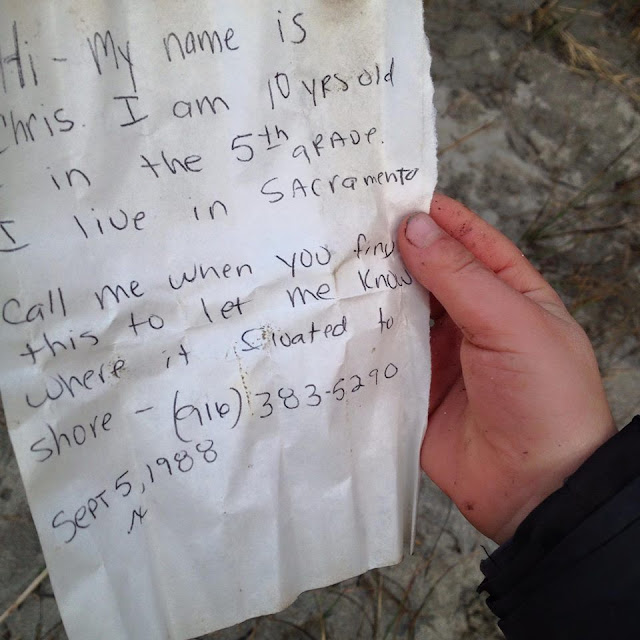 Hi - My name is
Chris. I am 10 yrs old
in the 5th grade.
I live in Sacramento
Call me when you find
this to let me know
where it floated to
shore - (916) 383-5290
Sept 5, 1988